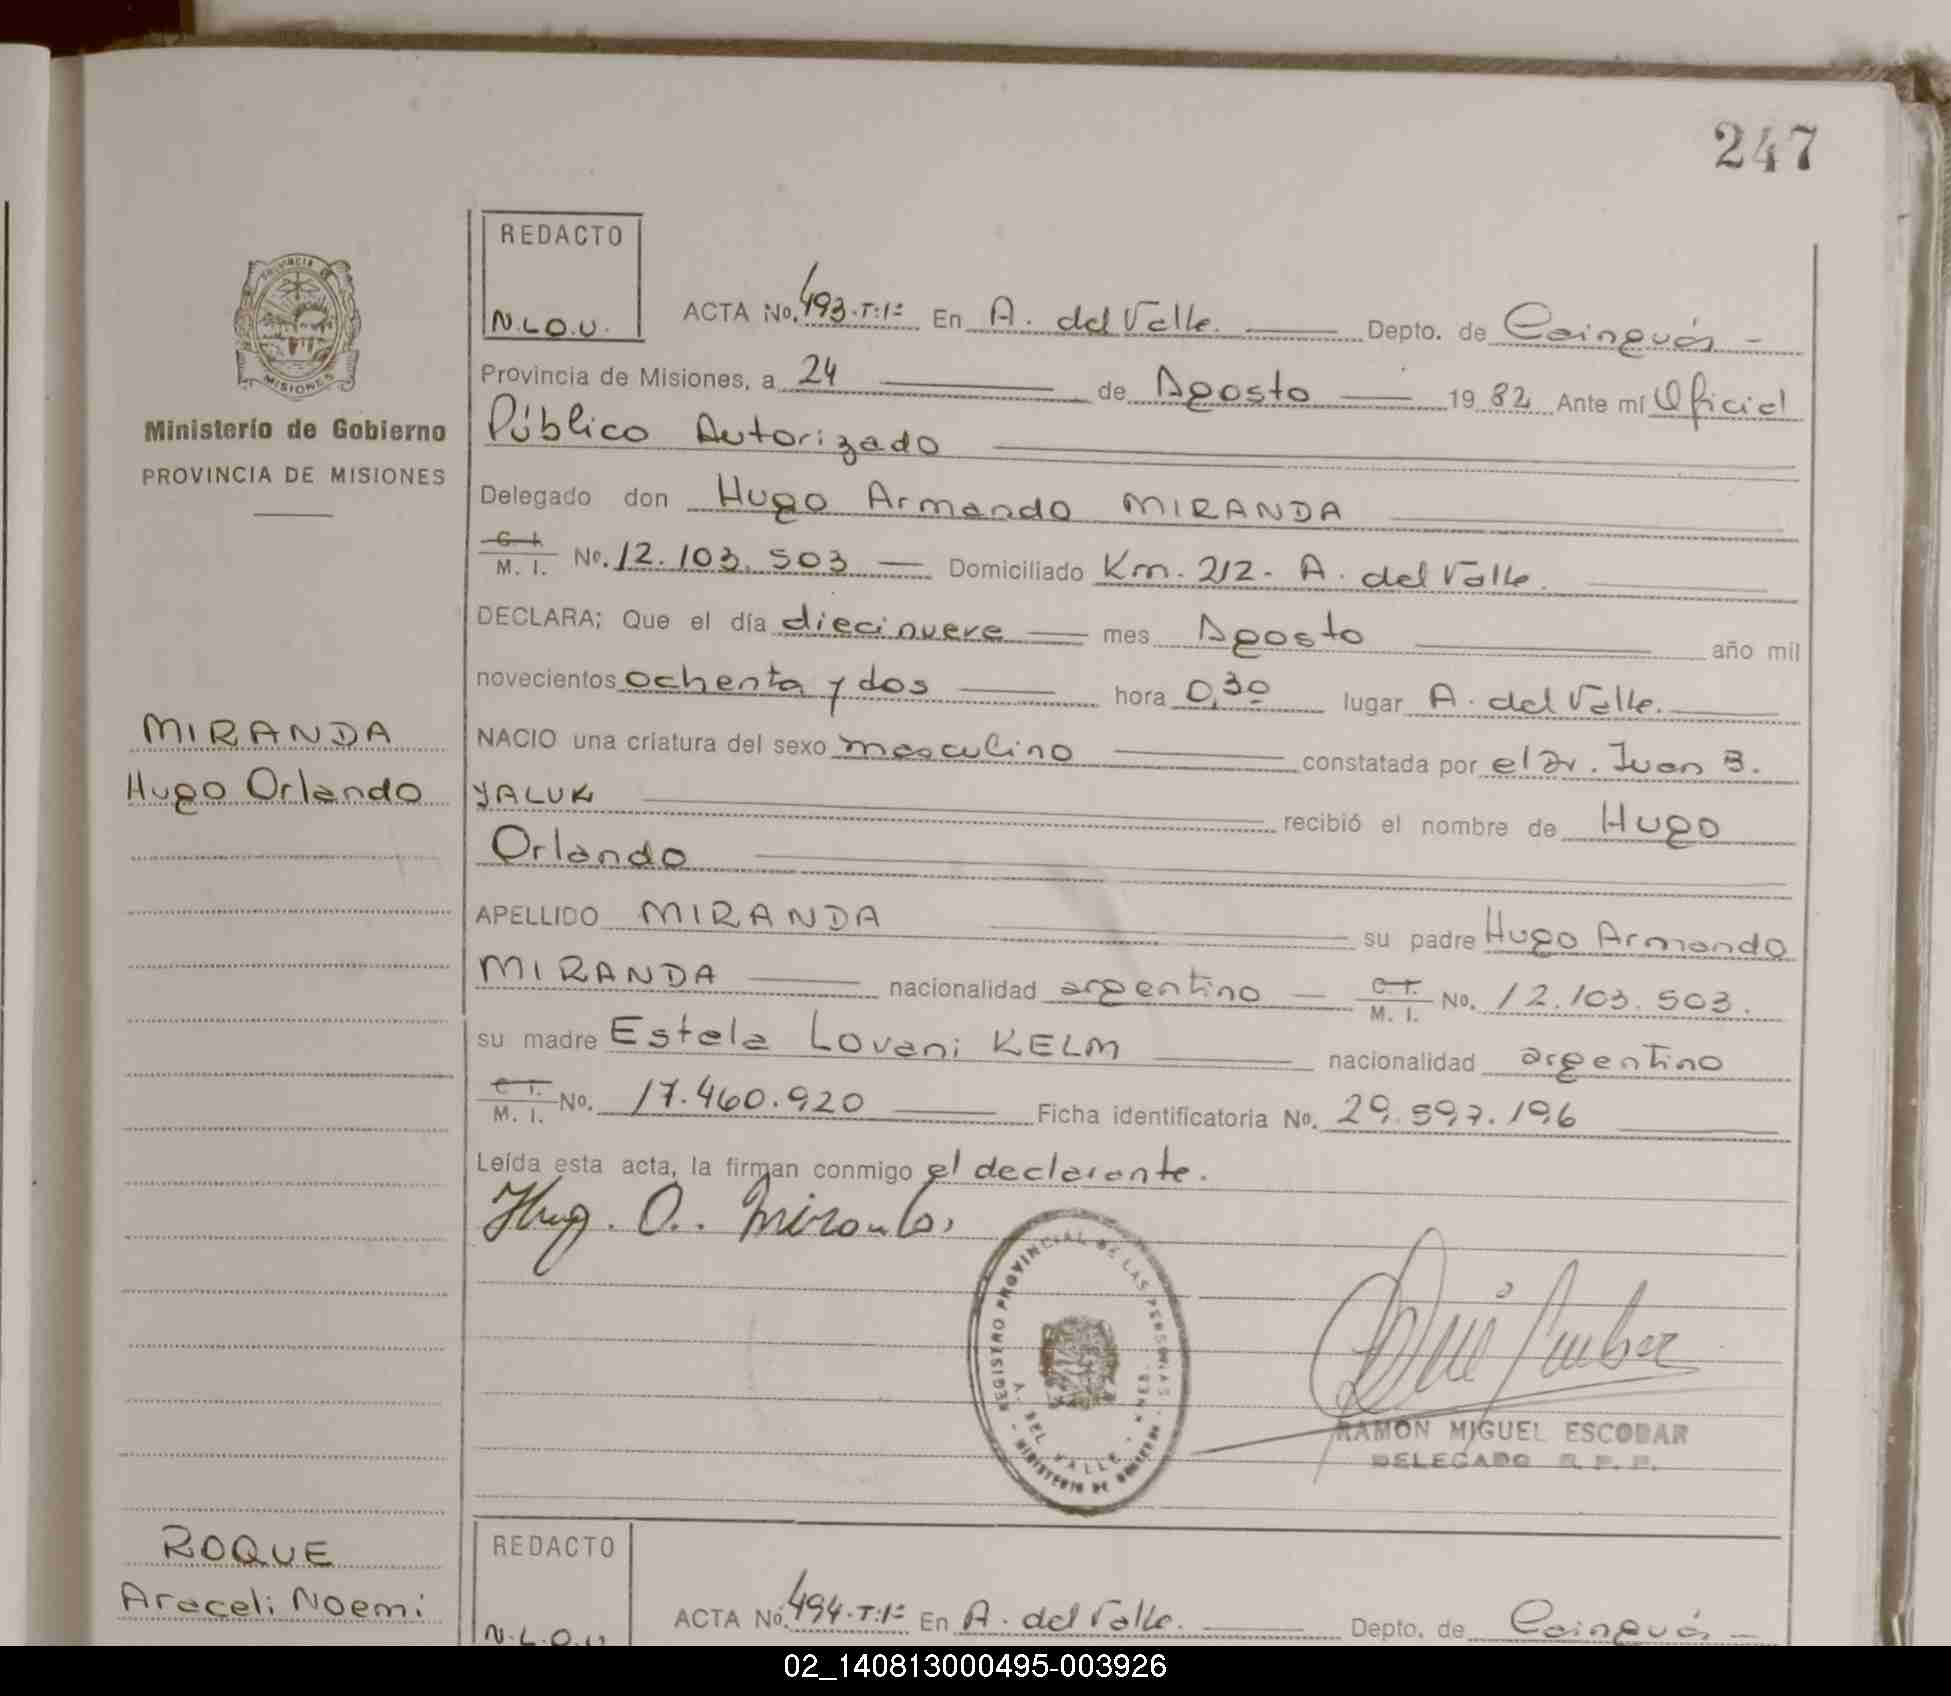 247
REDACTO
N.L.O.U.
ACTA No. 493.T:1º En A. del Valle. Depto. de Cainguás -
Provincia de Misiones, a 24 de Agosto 1982 Ante mí Oficial
Público Autorizado
Delegado don Hugo Armando MIRANDA
C. I.
M. I. No. 12.103.503 Domiciliado Km. 212- A. del Valle.
DECLARA; Que el día diecinueve mes Agosto año mil
novecientos ochenta y dos hora 0,30 lugar A. del Valle.
NACIO una criatura del sexo masculino constatada por el Dr. Juan B.
YALUK recibió el nombre de Hugo
Orlando
APELLIDO MIRANDA su padre Hugo Armando
MIRANDA nacionalidad argentino C. I. M. I. No. 12.103.503.
su madre Estela Lovani KELM nacionalidad argentino
C. I. M. I. No. 17.460.920 Ficha identificatoria No. 29.597.196
Leída esta acta, la firman conmigo el declarante.
Hug. A. Miranda
REGISTRO PROVINCIAL DE LAS PERSONAS
A. DEL VALLE - MNES.
MINISTERIO DE GOBIERNO
RAMON MIGUEL ESCOBAR
DELEGADO R. P. P.
PROVINCIA DE
MISIONES
Ministerio de Gobierno
PROVINCIA DE MISIONES
MIRANDA
Hugo Orlando
ROQUE
Araceli Noemi
REDACTO
N.L.O.U
ACTA No. 494.T:1º En A. del Valle. Depto. de Cainguás -
02_140813000495-003926